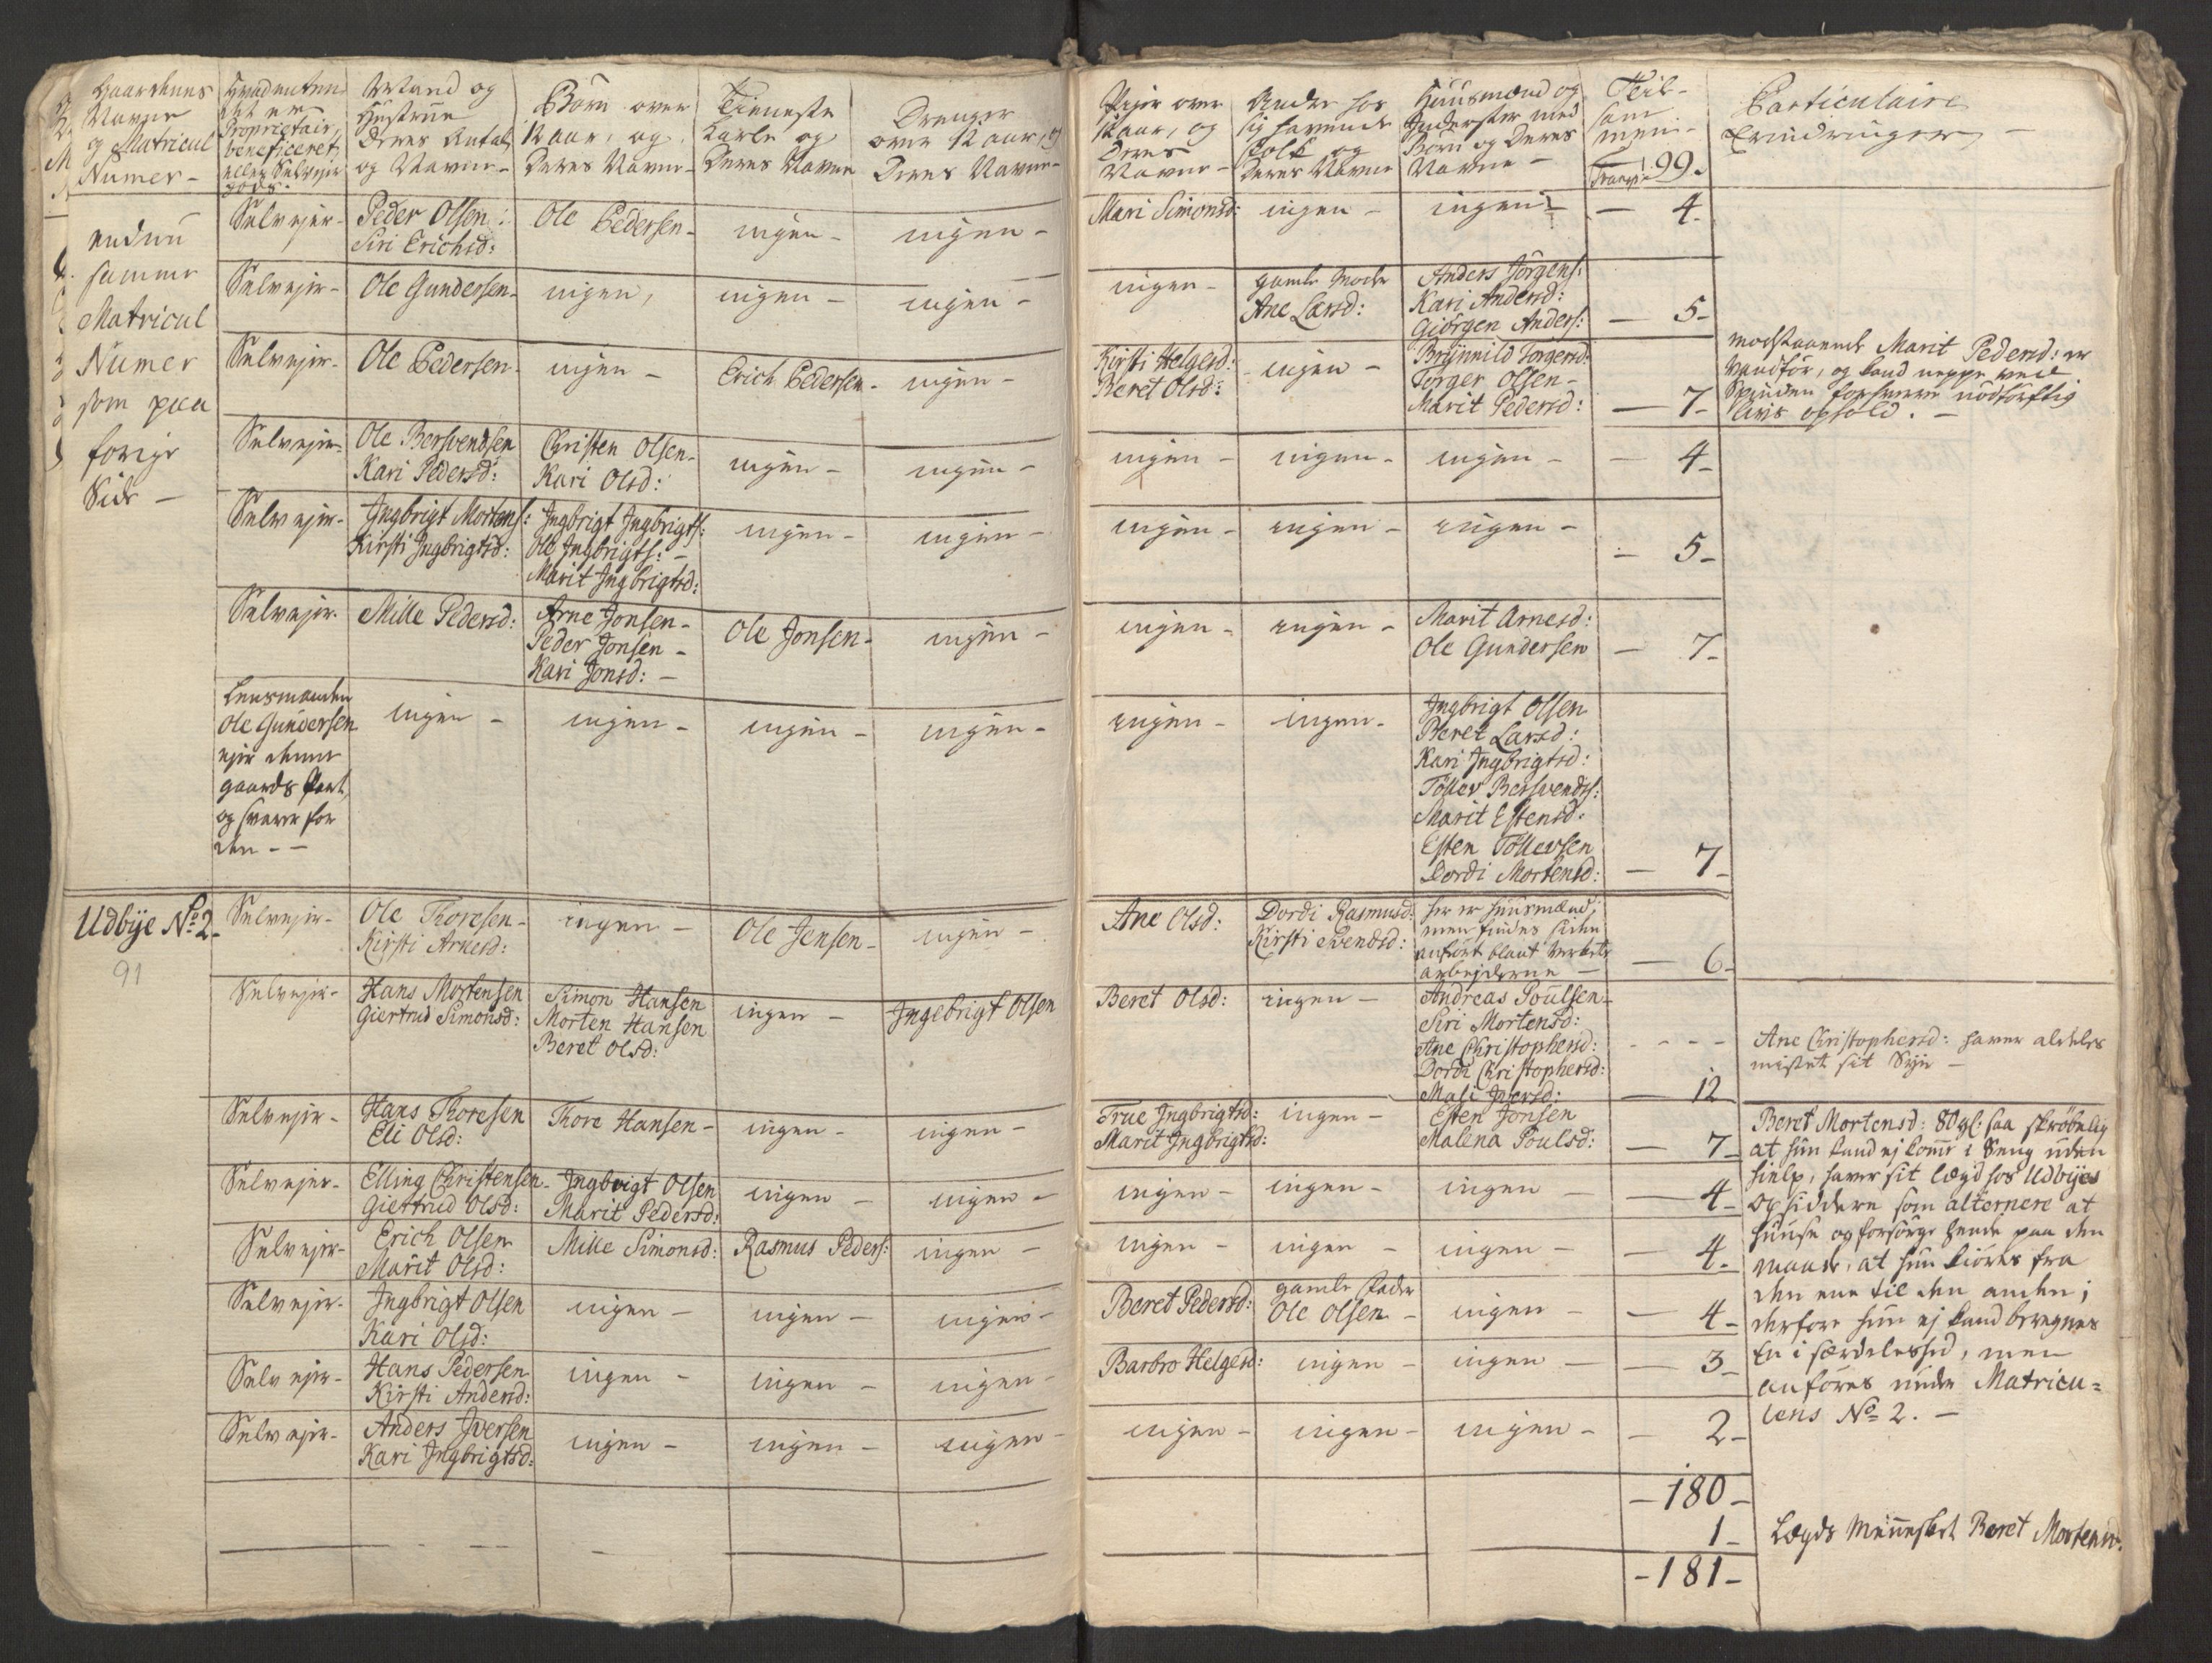 Gaardenes
Navne
og Matricul
Numer-
Hvad enten
det er
Proprietair,
beneficeret
eller Selvejer
gods.
Mand og
Hustrue
deres Antal
og Navne-
Börn over
12 aar, og
deres Navne-
Tieneste
Karle og
deres Navne
Drenge
over 12 aar, og
deres Navne-
Piger over
12 aar, og
deres
Navne-
Andre hos
sig havende
Folk og
deres Navne
Huusmænd og
Inderster med
Börn og deres
Navne-
Til-
sam-
men-
Transp: 99.
Particulaire
Erindringer, -
endnu
samme
Matricul
Numer
som paa
forige
Side -
Selvejer- Peder Olsen: Ole Pedersen- ingen- ingen- Mari Simonsd: ingen- ingen- - 4-
Siri Erichsd:
Selvejer- Ole Gundersen- ingen, ingen- ingen- ingen- gamle Moder Anders Jörgens:
Ane Larsd: Kari Andersd:
Giörgen Anders: - 5-
Selvejer- Ole Pedersen- ingen- Erich Pedersen- ingen- Kirsti Helgesd: ingen- Brÿnnild Torgersd:
Beret Olsd: Torger Olsen-
Marit Pedersd: - 7-
modstaaende Marit Pedersd: er
vandför, og kand neppe ved
Spinden fortiene nödtörftig
livs ophold. -
Selvejer- Ole Bersvendsen Christen Olsen- ingen- ingen- ingen- ingen- ingen- - 4-
Kari Pedersd: Kari Olsd:
Selvejer- Jngbrigt Mortens: Jngbrigt Jngbrigts: ingen- ingen- ingen- ingen- ingen-
Kirsti Jngbrigtsd: Ole Jngbrigts: - - 5-
Marit Jngbrigtsd:
Selvejer- Mille Pedersd: Arne Jonsen- Ole Jonsen- ingen- ingen- ingen- Marit Arnesd:
Peder Jonsen- Ole Gundersen - 7-
Kari Jonsd: -
Lensmanden
Ole Gundersen
ejer denne
gaards Part,
og svarer for
den - -
ingen- ingen- ingen- ingen- ingen- ingen- Jngbrigt Olsen
Beret Larsd:
Kari Jngbrigtsd:
Töller Bersvends:
Marit Estensd:
Esten Töllersen
Dordi Mortensd: - 7-
Udbÿe No 2-
91
Selvejer- Ole Thoresen- ingen- Ole Jensen- ingen- Ane Olsd: Dordi Rasmusd: her er huusmænd,
Kirsti Arnesd: Kirsti Svendsd: men findes siden
anfört blant Verkets
arbejderne - - 6-
Selvejer- Hans Mortensen Simon Hansen ingen- Jngebrigt Olsen Beret Olsd: ingen- Andreas Poulsen-
Giertrud Simonsd: Morten Hansen Siri Mortensd:
Beret Olsd: Ane Christophersd: - - - -
Dordi Christophersd:
Mali Jversd: - 12
Ane Christophersd: haver aldeles
mistet sit Syn -
Selvejer- Hans Thoresen Thore Hansen- ingen- ingen- True Jngbrigtsd: ingen- Esten Jonsen
Eli Olsd: Marit Jngbrigtsd: Malena Poulsd: - 7-
Selvejer- Elling Christensen- Jngbrigt Olsen ingen- ingen- ingen- ingen- ingen- - 4-
Giertrud Olsd: Marit Pedersd:
Selvejer- Erich Olsen Mille Simonsd: Rasmus Peders: ingen- ingen- ingen- ingen- - 4-
Marit Olsd:
Selvejer- Jngbrigt Olsen ingen- ingen- ingen- Beret Pedersd: gamle Fader ingen- - 4-
Kari Olsd: Ole Olsen-
Selvejer- Hans Pedersen ingen- ingen- ingen- Barbro Helgesd: ingen- ingen- - 3-
Kirsti Andersd:
Selvejer- Anders Jversen ingen- ingen- ingen- ingen- ingen- ingen- - 2-
Kari Jngbrigtsd:
Beret Mortensd: 80 gl: saa skröbelig
at hun kand ej komme i Seng uden
hielp, haver sit lægd hos Udbÿes
opsiddere som alternere at
huuse og forsörge hende paa den
maade, at hun kiöres fra
den ene til den anden;
derfore hun ej kand beregnes
en i særdeleshed, men
anföres under Matricu=
lens No 2. -
-180-
1- Lægds Mennesket Beret Mortensd.
-181-